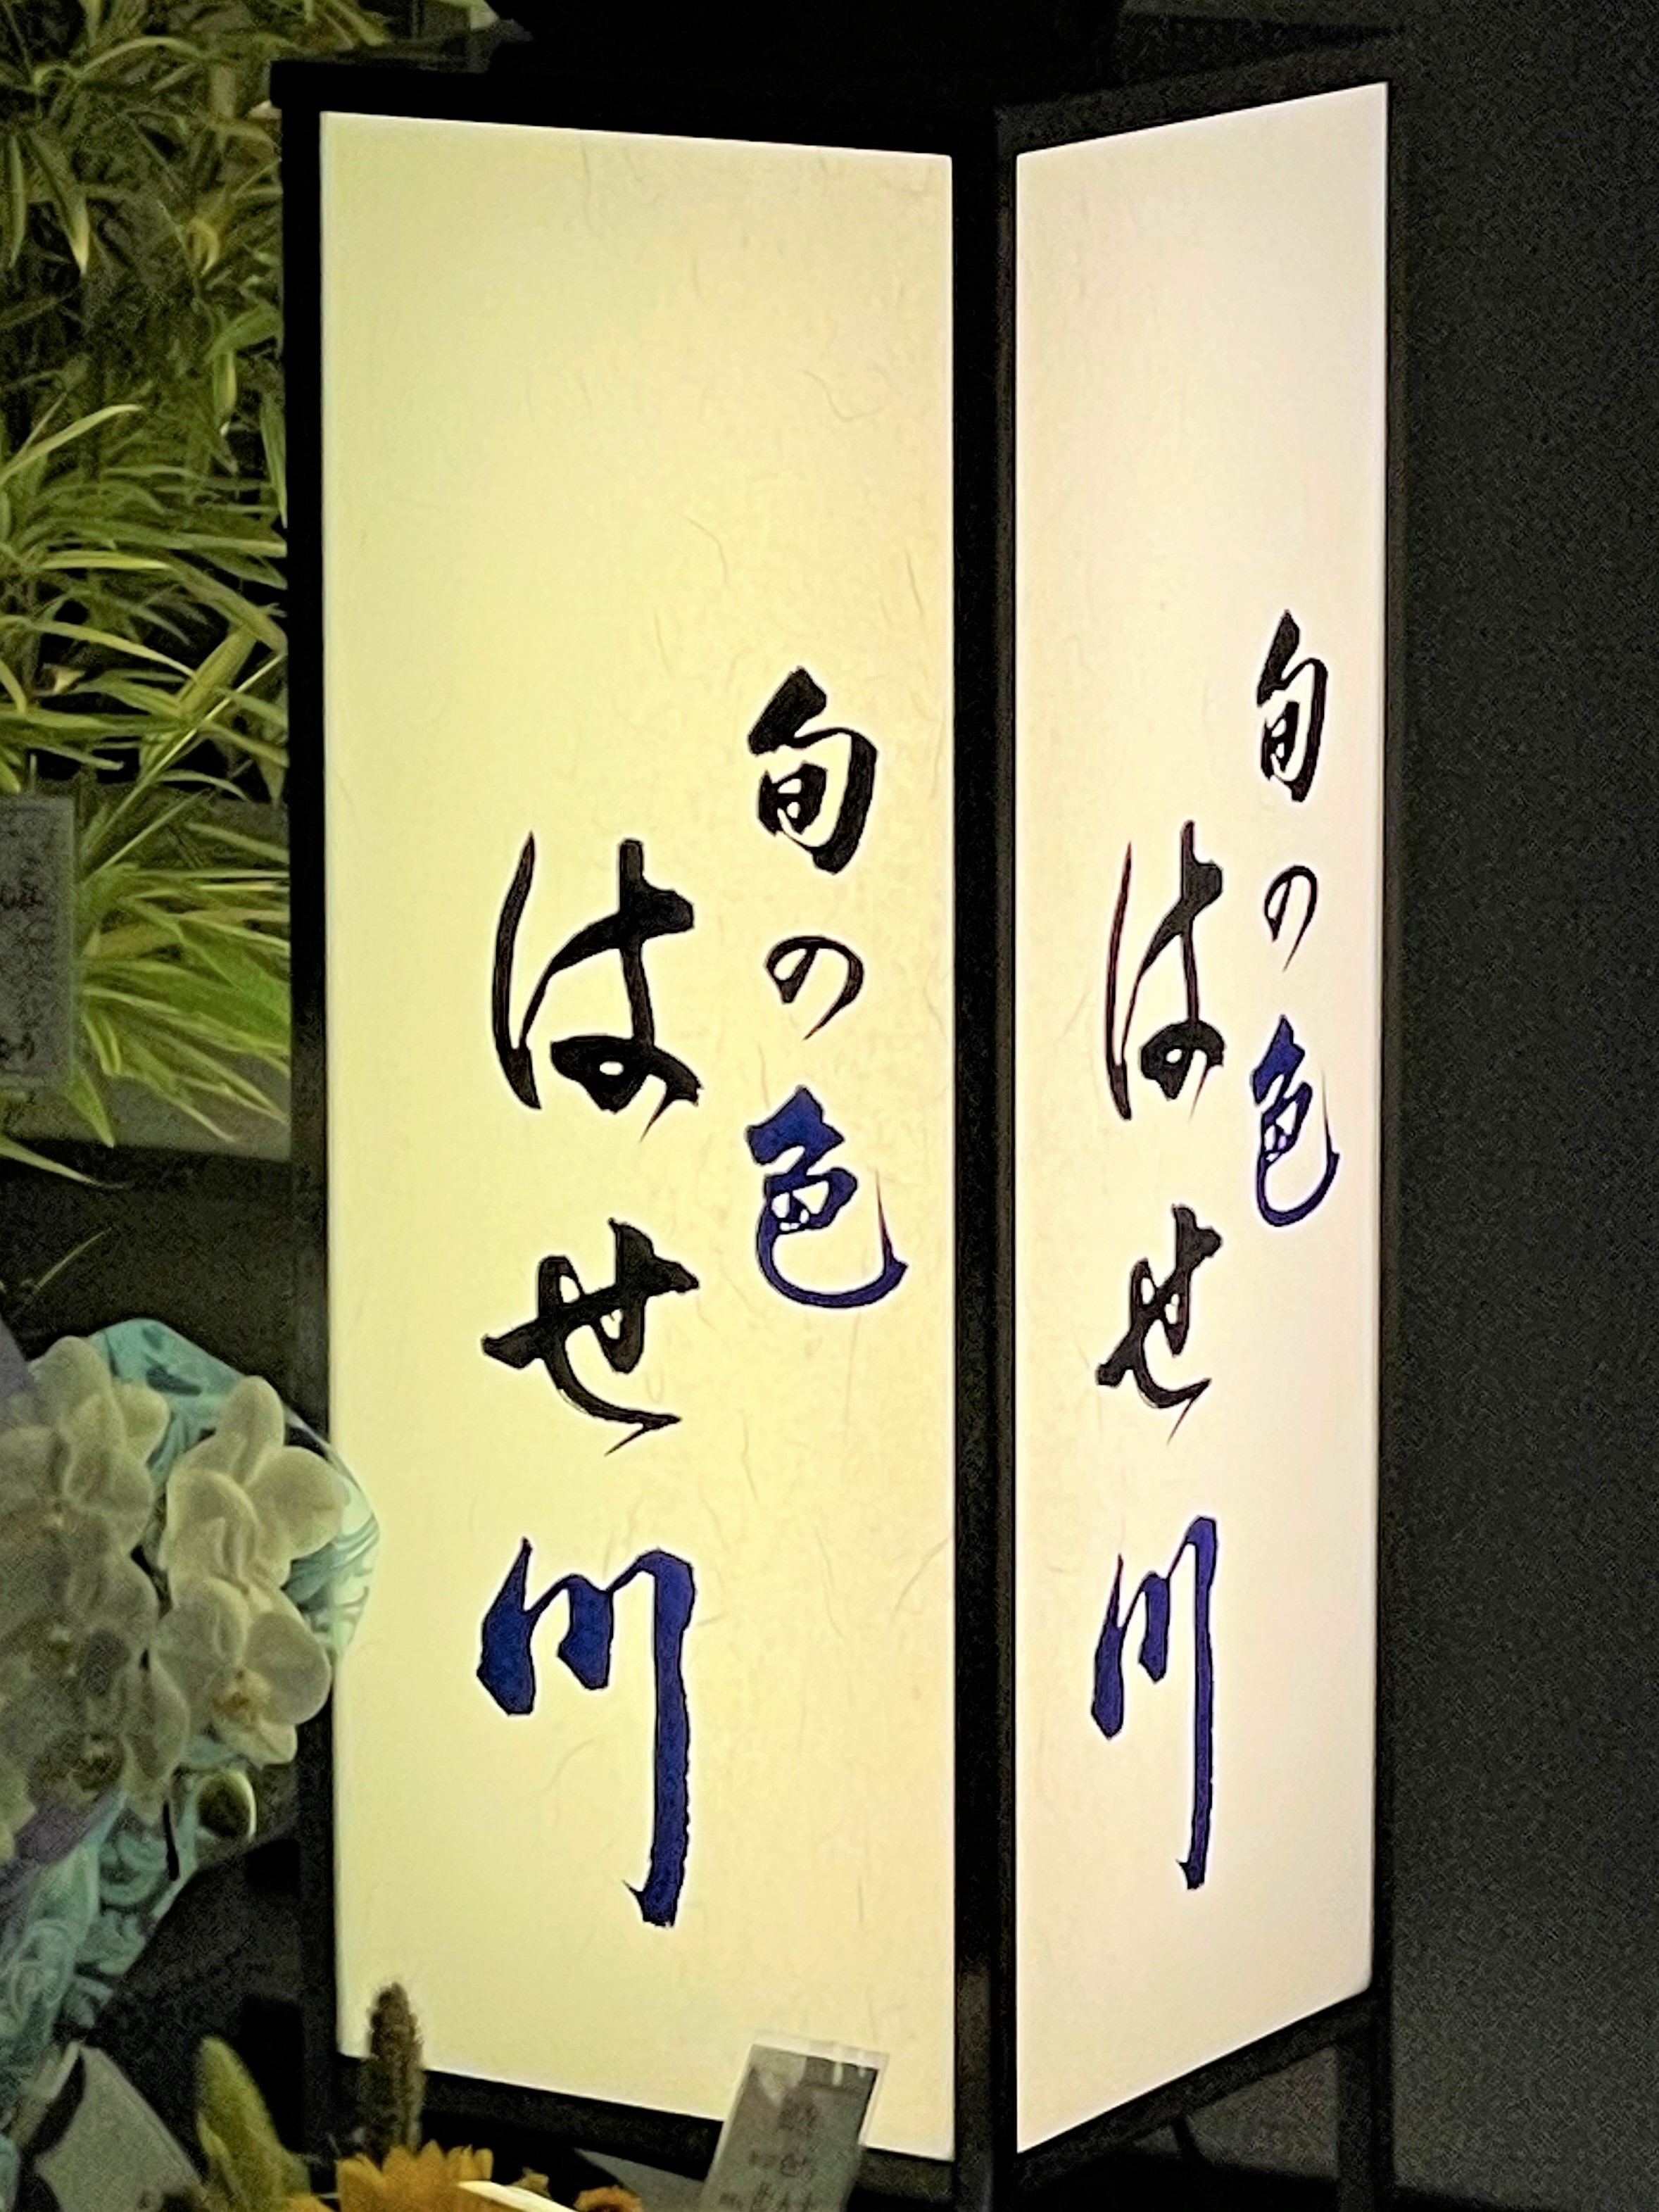 旬の色
はせ川
旬の色
はせ川